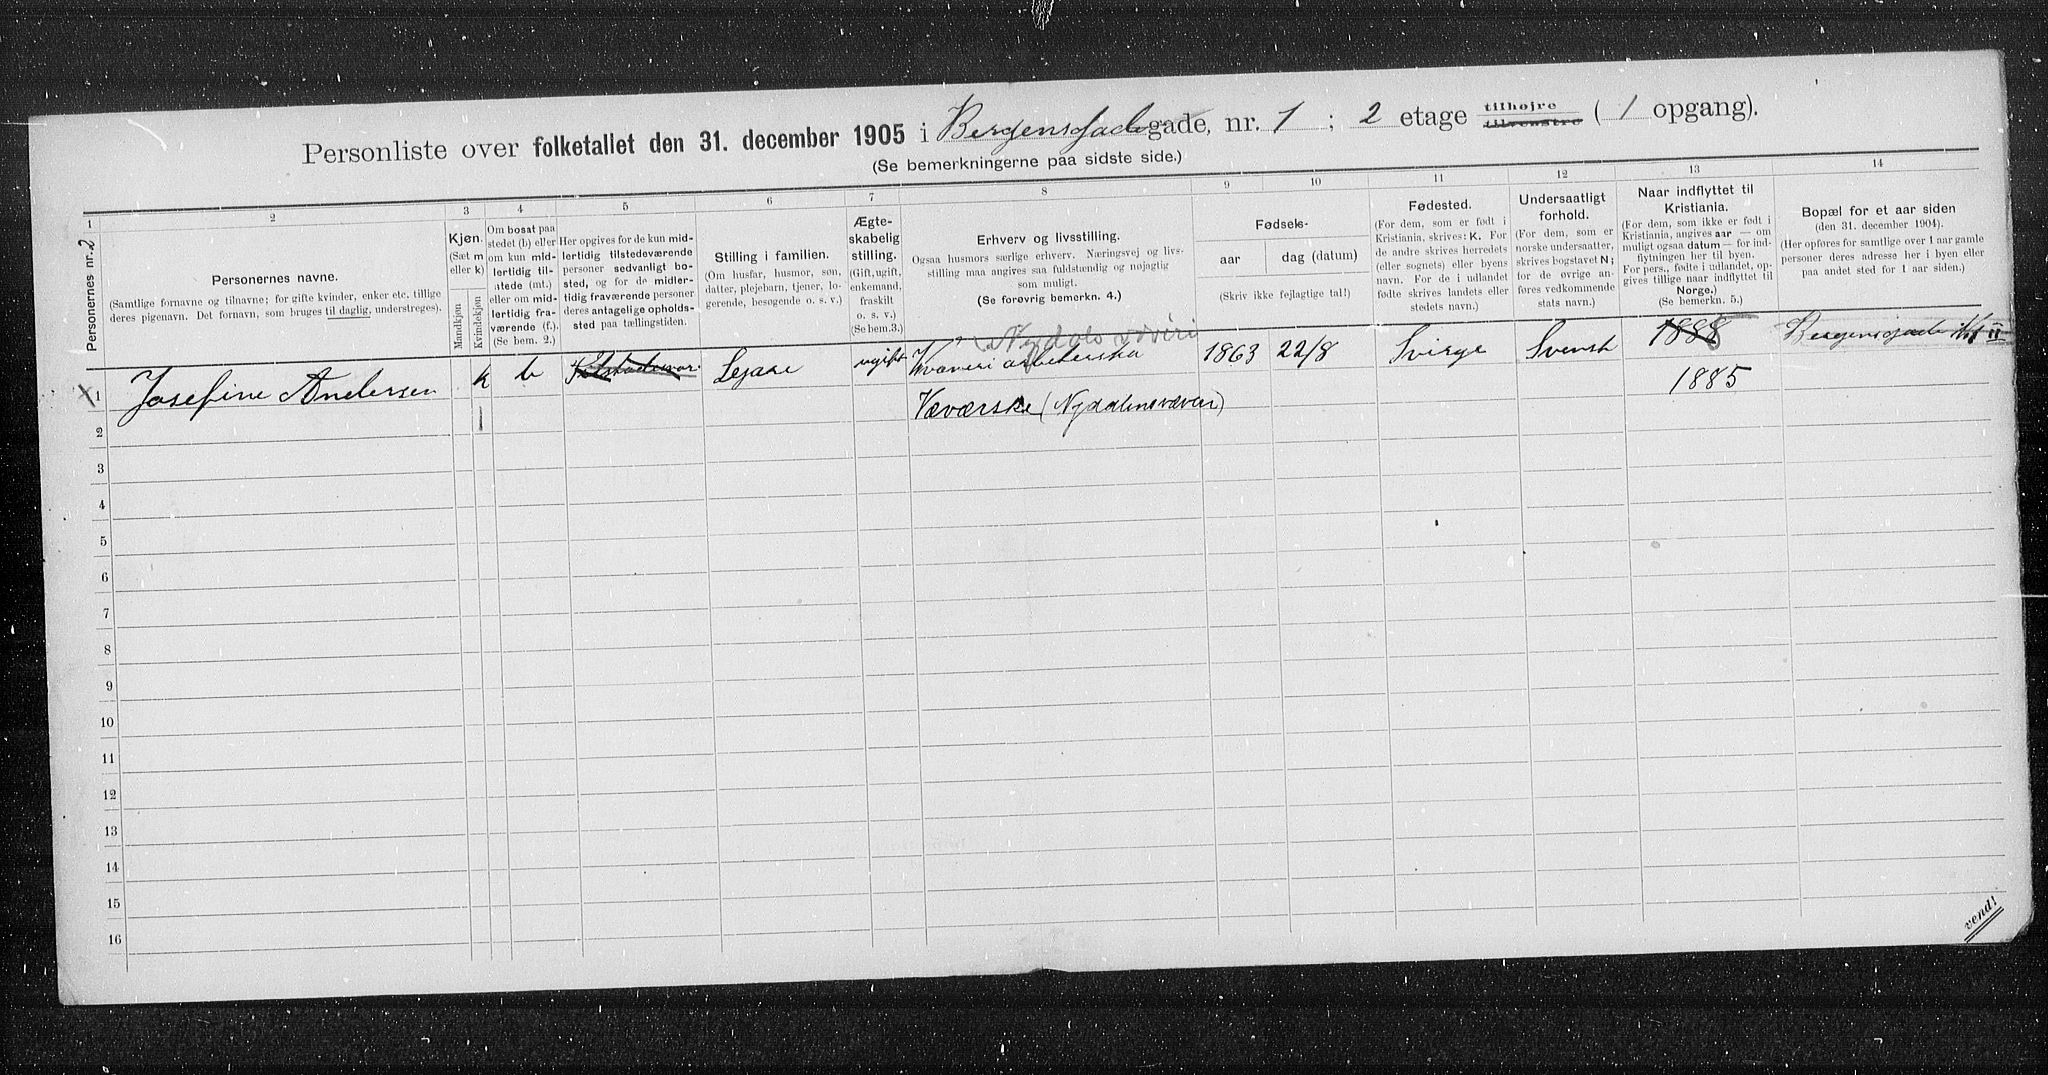 Personliste over folketallet den 31. december 1905 i Bergensgade gade, nr. 1 ; 2 etage tilhøjre tilvenstre ( 1 opgang).
(Se bemerkningerne paa sidste side.)
1 2 3 4 5 6 7 8 9 10 11 12 13 14
Personernes nr. 2
Personernes navne.
(Samtlige fornavne og tilnavne; for gifte kvinder, enker etc. tillige
deres pigenavn. Det fornavn, som bruges til daglig, understreges).
Kjøn.
(Sæt m
eller k)
Mandkjøn
Kvindekjøn
Om bosat paa
stedet (b) eller
om kun mid-
lertidig til-
stede (mt.)
eller om mid-
lertidig fra-
værende (f.)
(Se bem. 2.)
Her opgives for de kun mid-
lertidig tilstedeværende
personer sedvanligt bo-
sted, og for de midler-
tidig fraværende personer
deres antagelige opholds-
sted paa tællingstiden.
Stilling i familien.
(Om husfar, husmor, søn,
datter, plejebarn, tjener, lo-
gerende, besøgende o. s. v.)
Ægte-
skabelig
stilling.
(Gift, ugift,
enkemand,
fraskilt
o. s. v.)
(Se bem.3.)
Erhverv og livsstilling.
Ogsaa husmors særlige erhverv. Næringsvej og livs-
stilling maa angives saa fuldstændig og nøjagtig
som muligt.
(Se forøvrig bemerkn. 4.)
Fødsels-
aar dag (datum)
(Skriv ikke fejlagtige tal!)
Fødested.
(For dem, som er født i
Kristiania, skrives: K. For
de andre skrives herredets
(eller sognets) eller byens
navn. For de i udlandet
fødte skrives landets eller
stedets navn.)
Undersaatligt
forhold.
(For dem, som er
norske undersaatter,
skrives bogstavet N;
for de øvrige an-
føres vedkommende
stats navn.)
Naar indflyttet til
Kristiania.
(For dem, som ikke er født i
Kristiania, angives aar — om
muligt ogsaa datum — for ind-
flytningen her til byen.
For pers., fødte i udlandet, op-
gives tillige naar indflyttet til
Norge.)
(Se bemerkn. 5.)
Bopæl for et aar siden
(den 31. december 1904).
(Her opføres for samtlige over 1 aar gamle
personer deres adresse her i byen eller
paa andet sted for 1 aar siden.)
Nydals væveri
x 1 Josefine Andersen k b Tilstedevær. Lejare ugift Kvæveri arbeterska 1863 22/8 Sverge Svensk 1888 Bergensgade No 1 II
1885
Væverske (Nydalens væver)
2
3
4
5
6
7
8
9
10
11
12
13
14
15
16
vend!